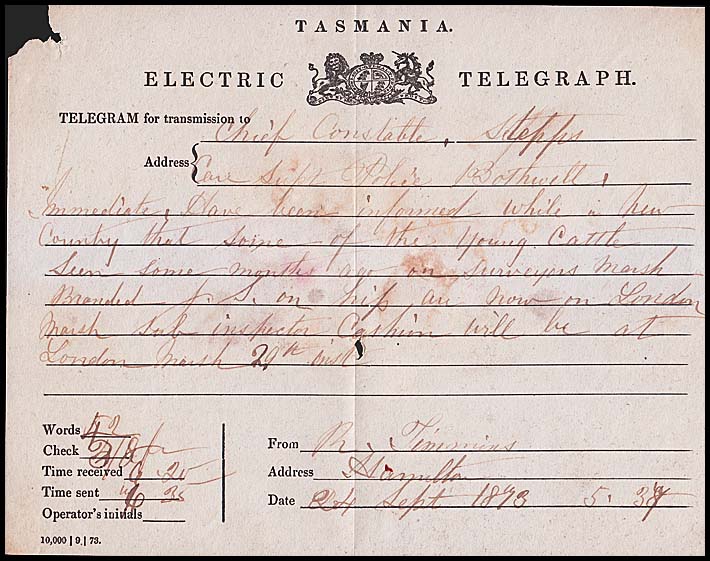 TASMANIA.
ELECTRIC TELEGRAPH.
TELEGRAM for transmission to Chief Constable, Stepps
Address Care Supt Police Bothwell,
Immediate, Have been informed while in new
Country that some of the young Cattle
Seen some months ago on Surveyors Marsh
Branded J. S. on hip are now on London
Marsh Sub inspector Cashion will be at
London Marsh 29th inst
Words 52
Check
Time received 6 25
Time sent 6
Operator's initials
From R. Timmins
Address Hamilton
Date 24 Sept 1873 5. 37
10,000 | 9 | 73.